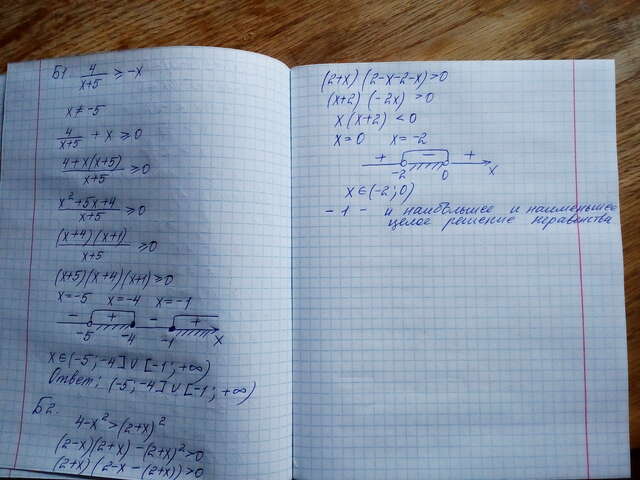 Б1. 4/(x+5) ≥ -x
x ≠ -5
4/(x+5) + x ≥ 0
(4+x(x+5))/(x+5) ≥ 0
(x²+5x+4)/(x+5) ≥ 0
((x+4)(x+1))/(x+5) ≥ 0
(x+5)(x+4)(x+1) ≥ 0
x=-5 x=-4 x=-1
- + - +
-5 -4 -1 x
x∈(-5;-4]∪[-1;+∞)
Ответ: (-5;-4]∪[-1;+∞)
Б2.
4-x²>(2+x)²
(2-x)(2+x)-(2+x)²>0
(2+x)(2-x-(2+x))>0
(2+x)(2-x-2-x)>0
(x+2)(-2x)>0
x(x+2)<0
x=0 x=-2
+ - +
-2 0 x
x∈(-2;0)
-1- и наибольшее и наименьшее
целое решение неравенства